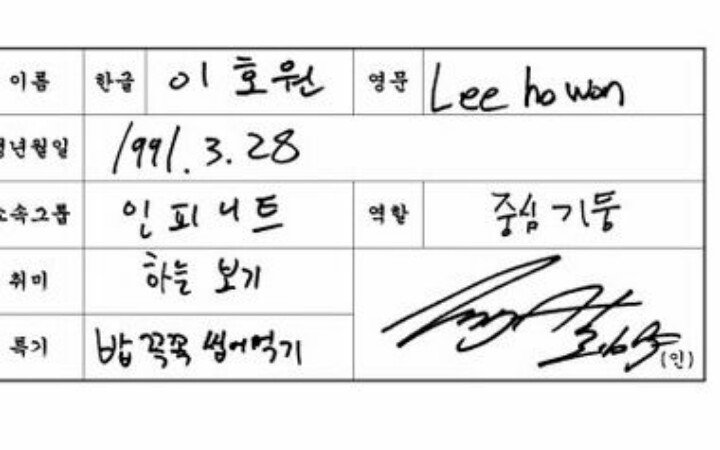 이름 한글 이호원 영문 Lee ho won
년월일 1991. 3. 28
소속그룹 인피니트 역할 중심기둥
취미 하늘 보기
특기 밥 꼭꼭 씹어먹기
(인)